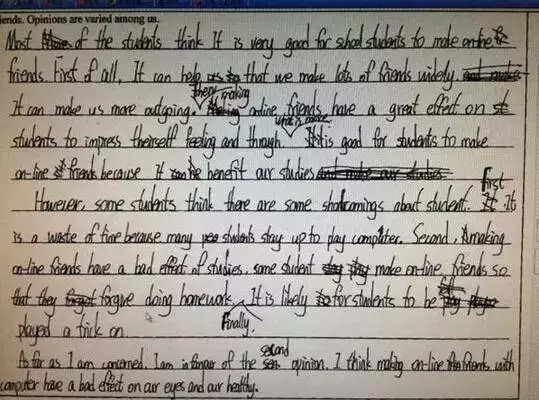 iends. Opinions are varied among us.
Most of the students think It is very good for school students to make on-line
friends. First of all, It can help us that we make lots of friends widely.
It can make us more outgoing. then, making online friends have a great effect on
students to impress theirself feeling and through. what is more It is good for students to make
on-line friends because It benefit our studies
However, some students think there are some shortcomings about student. First It
is a waste of time because many students stay up to play computer. Second, making
on-line friends have a bad effect of studies. some student make on-line friends so
that they forgive doing homework. Finally. It is likely for students to be
played a trick on
As far as I am concerned. I am in favour of the second opinion. I think making on-line friends with
computer have a bad effect on our eyes and our healthy.